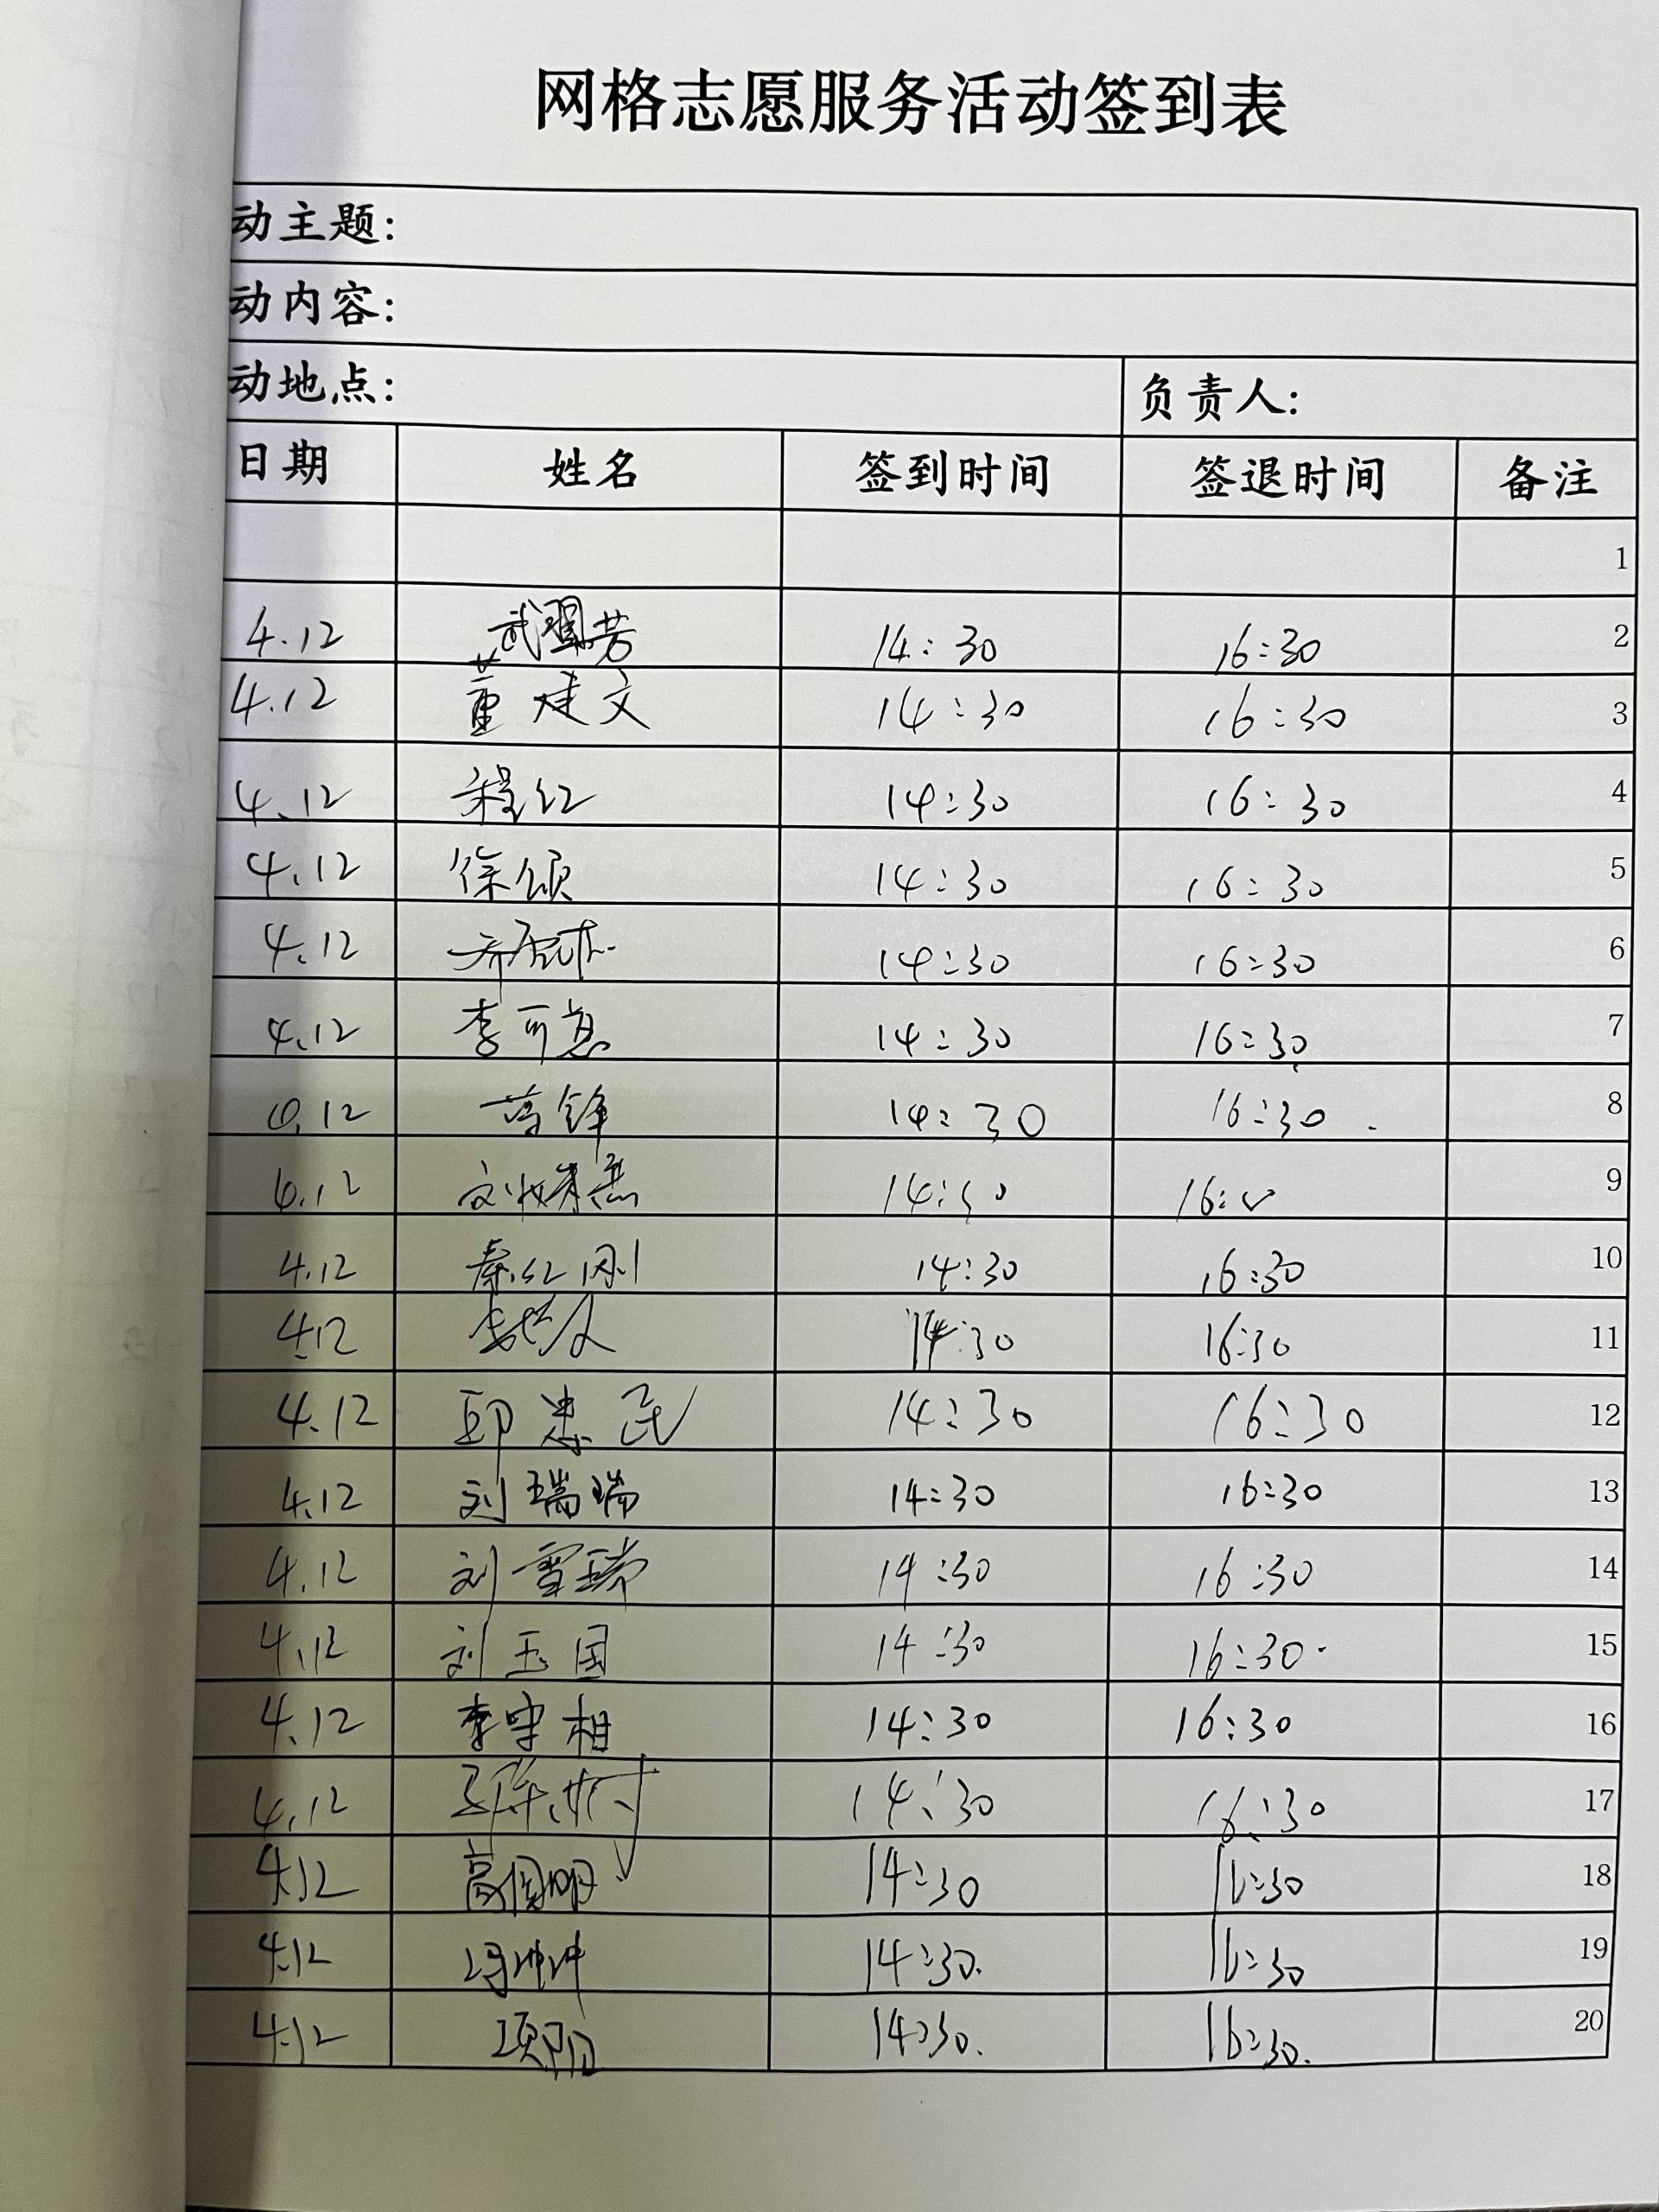 网格志愿服务活动签到表
动主题：
动内容：
动地点： 负责人：
日期 姓名 签到时间 签退时间 备注
1
4.12 武 芳 14:30 16:30 2
4.12 董建文 14:30 16:30 3
4.12 程红 14:30 16:30 4
4.12 徐颂 14:30 16:30 5
4.12 14:30 16:30 6
4.12 李可意 14:30 16:30 7
4.12 14:30 16:30 8
4.12 14:30 16: 9
4.12 秦红刚 14:30 16:30 10
4.12 14:30 16:30 11
4.12 邱忠民 14:30 16:30 12
4.12 刘瑞瑞 14:30 16:30 13
4.12 刘雪瑞 14:30 16:30 14
4.12 刘玉国 14:30 16:30 15
4.12 李守相 14:30 16:30 16
4.12 14:30 16:30 17
4.12 高国明 14:30 16:30 18
4.12 冯坤坤 14:30 16:30 19
4.12 项阳 14:30 16:30 20